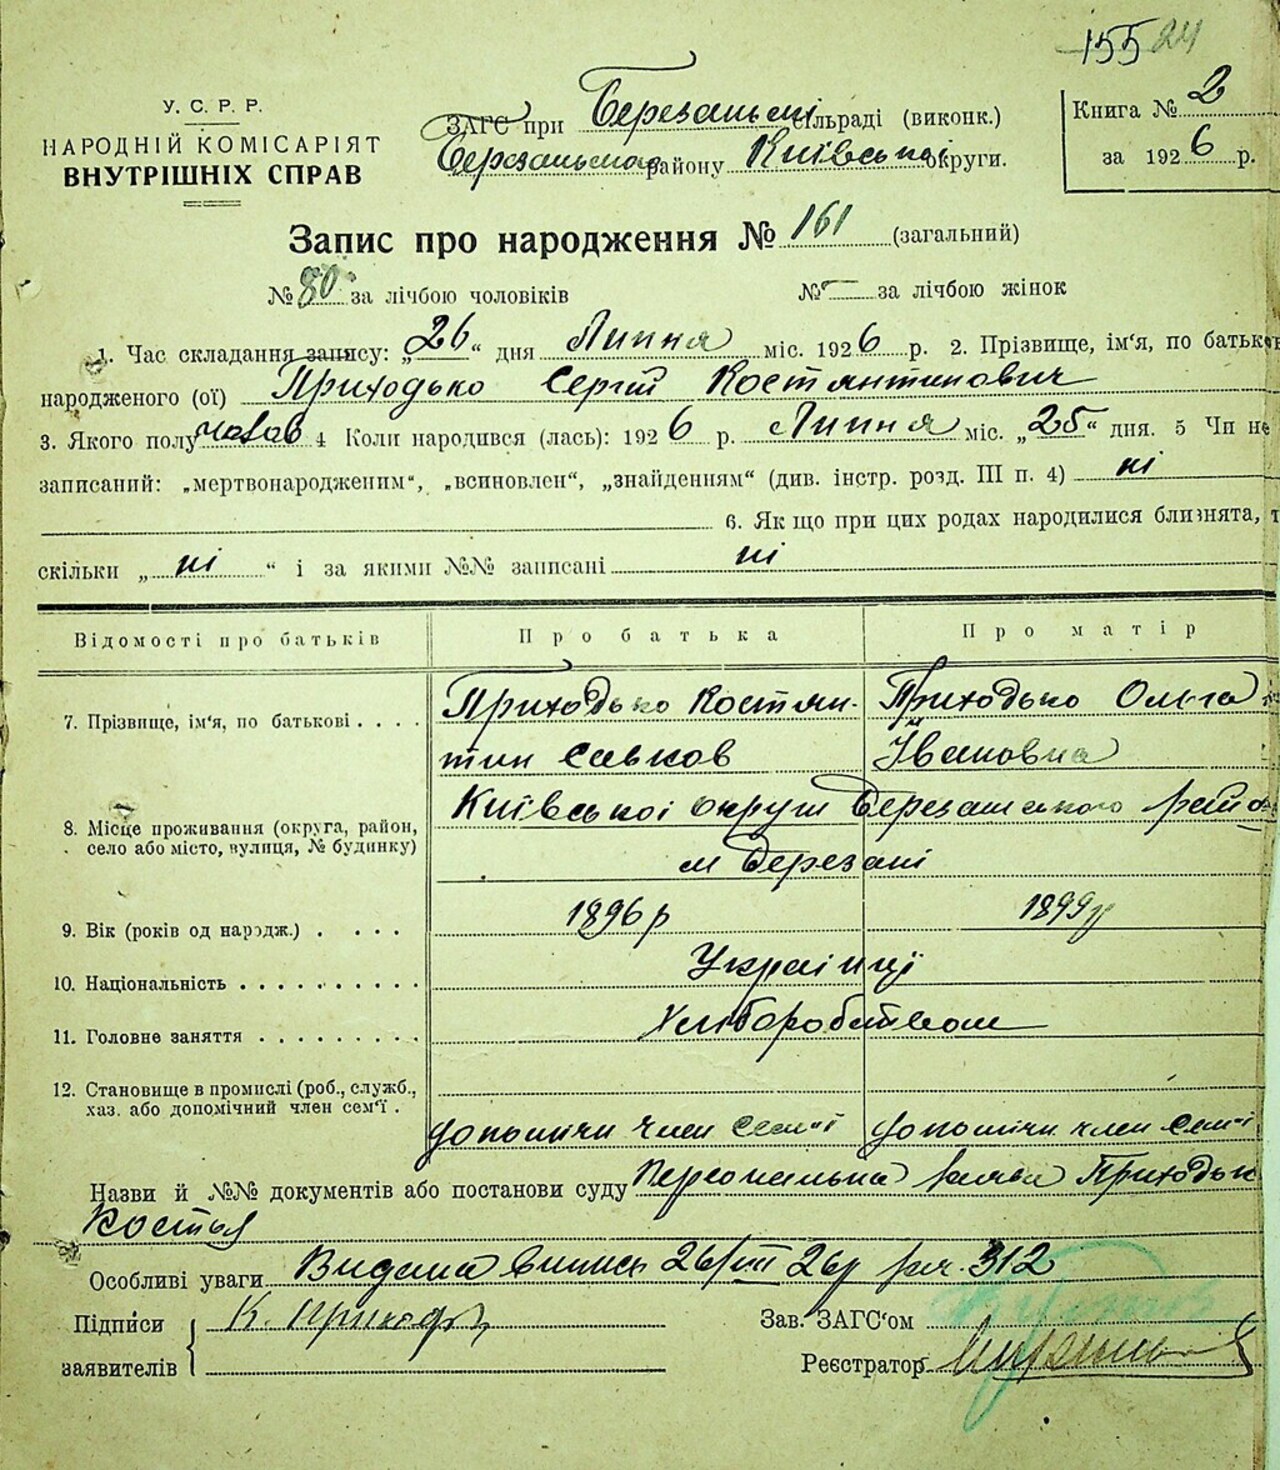 155 24
У. С. Р. Р.
НАРОДНІЙ КОМІСАРІЯТ
ВНУТРІШНІХ СПРАВ
ЗАГС при Березанській сільраді (виконк.)
Березанського району Київської округи.
Книга № 2
за 1926 р.
Запис про народження № 161 (загальний)
№ 80 за лічбою чоловіків № — за лічбою жінок
1. Час складання запису: „26“ дня Липня міс. 1926 р. 2. Прізвище, ім'я, по батьков
народженого (ої) Приходько Сергій Костянтинович
3. Якого полу чолов 4 Коли народився (лась): 1926 р. Липня міс. „25“ дня. 5 Чи не
записаний: „мертвонародженим“, „всиновлен“, „знайденням“ (див. інстр. розд. III п. 4) ні
6. Як що при цих родах народилися близнята, т
скільки „ ні “ і за якими №№ записані ні
Відомості про батьків Про батька Про матір
7. Прізвище, ім'я, по батькові . . . . Приходько Костян- Приходько Ольга
тин Савков Івановна
8. Місце проживання (округа, район, село або місто, вулиця, № будинку) Київської округи Березанського райо
м Березані
9. Вік (років од народж.) . . . . 1896 р 1899 р
10. Національність . . . . . . . . . . Українці
11. Головне заняття . . . . . . . . . Хліборобством
12. Становище в промислі (роб., служб.,
хаз. або допомічний член сем'ї .
допомічн член семьї допомічн член семьї
Назви й №№ документів або постанови суду Персональна заява Приходьк
Костя
Особливі уваги Видана випись 26/VII 26р за ч. 312
Підписи К. Приходь
заявителів
Зав. ЗАГС'ом
Реєстратор